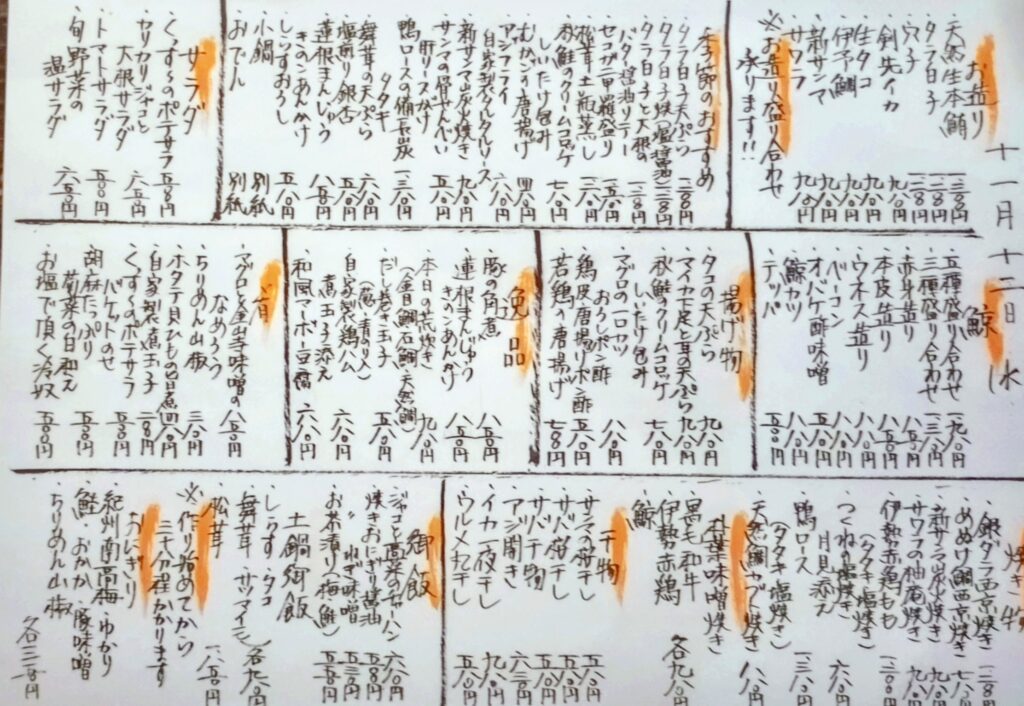 十一月十二日 水
お造り
・天然生本鮪 一三〇〇円
・タラ白子
・穴子
・剣先イカ 九八〇円
・生タコ 九八〇円
・伊予鯛 九八〇円
・新サンマ 九八〇円
・サワラ 九八〇円
※お造り盛り合わせ
承ります!!
季節のおすすめ
・タラ白子天ぷら
・タラ白子焼き
・タラ白子と大根の
バタ醤油ソテー
・セコガニ甲羅盛り
・松茸土瓶蒸し
・秋鮭のクリームコロッケ
しいたけ包み 七八〇円
・むかごの唐揚げ
・アジフライ
自家製タルタルソース
・新サンマ炭火焼き 九八〇円
・サンマの骨せんべい
肝ソースがけ
・鴨ロースの備長炭
タタキ 一三八〇円
・舞茸の天ぷら 六八〇円
・塩煎り銀杏 五八〇円
・蓮根まんじゅう
きのこあんかけ 八五〇円
・しらすおろし 五八〇円
・小鍋 別紙
・おでん 別紙
サラダ
・くっすーのポテサラ 五五〇円
・カリカリジャコと
大根サラダ 六五〇円
・トマトサラダ 五五〇円
・旬野菜の
温サラダ 六五〇円
鯨
・五種盛り合わせ 一九八〇円
・三種盛り合わせ 一三八〇円
・赤身造り 八五〇円
・本皮造り 八五〇円
・ウネス造り 八八〇円
・ベーコン 八八〇円
・オバケ酢味噌 八八〇円
・鯨カツ 八八〇円
・テッパ 五五〇円
揚げ物
・タコの天ぷら 九八〇円
・マイカ下足と茸天ぷら 九八〇円
・秋鮭のクリームコロッケ
しいたけ包み 七八〇円
・マグロの一口カツ
おろしポン酢 八八〇円
・鶏皮の唐揚げポン酢 五八〇円
・若鶏の唐揚げ 七八〇円
逸品
・豚の角煮 八五〇円
・蓮根まんじゅう
きのこあんかけ 八五〇円
・本日の荒炊き 九八〇円
(金目鯛 石鯛 天然鯛)
・だし巻き玉子
(葱・青のり入) 五八〇円
・自家製鶏ハム
煮玉子添え 六八〇円
・和風マーボー豆腐 六八〇円
肴
・マグロと金山寺味噌の
なめろう 八五〇円
・ちりめん山椒 三八〇円
・ホタテ貝ひもの旨煮 四八〇円
・自家製煮玉子 二八〇円
・くっすーのポテサラ
バケットのせ 五五〇円
・胡麻たっぷり
菊菜の白和え 五五〇円
・お塩で頂く冷奴 五五〇円
焼き物
・銀ダラ西京焼き 一二八〇円
・めぬけ鯛西京焼き 七八〇円
・新サンマ炭火焼き 九八〇円
・サワラの柚庵焼き 九八〇円
・伊勢赤鶏もも
(タタキ・塩焼き)
・つくねの塩焼き
月見添え 六八〇円
・鴨ロース
(タタキ・塩焼き) 一三八〇円
・天然鯛カブト焼き 八八〇円
朴葉味噌焼き
・黒毛和牛
・伊勢赤鶏
・鯨
各九八〇円
干物
・サンマの桜干し 五八〇円
・サバ桜干し 五八〇円
・サバ干物 五八〇円
・アジ開き 六三〇円
・イカ一夜干し 九八〇円
・ウルメ丸干し 五五〇円
御飯
・ジャコと高菜のチャーハン 六八〇円
・焼きおにぎり 醤油
ねぎ味噌
・お茶漬け(梅・鮭) 五五〇円
土鍋御飯
・しらす・タコ
・舞茸・サツマイモ 各九八〇円
・松茸 一八五〇円
※作り始めてから
三十分程かかります
おにぎり
・紀州南高梅・ゆかり
・鮭・おかか・豚味噌
・ちりめん山椒 各三三〇円